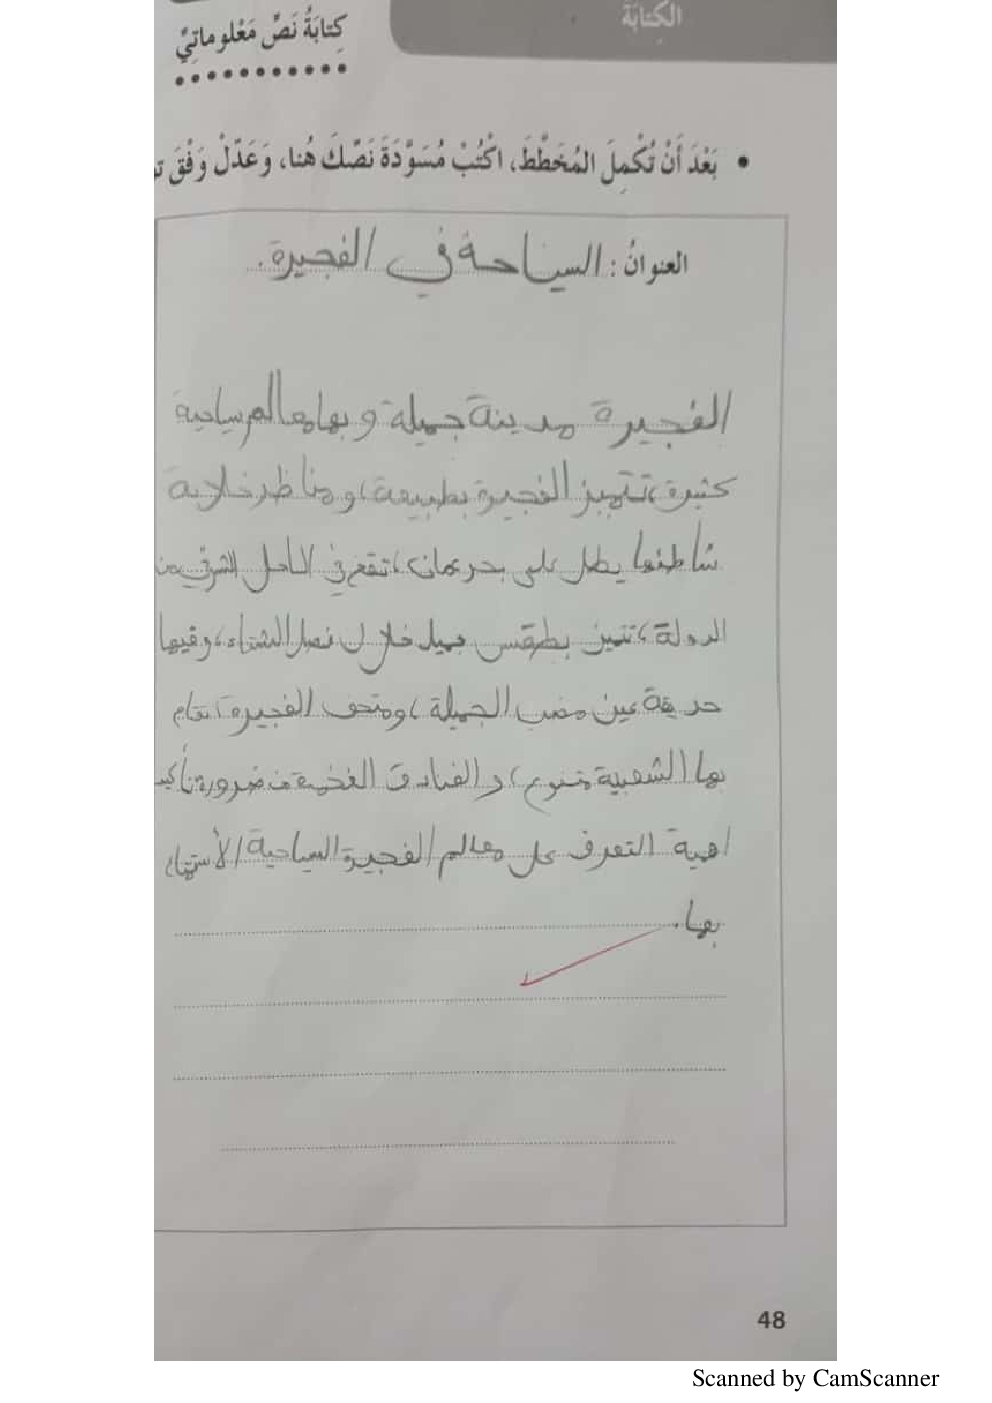 الكِتابَة
كِتابَةُ نَصٍّ مَعْلوماتِيٍّ
• بَعْدَ أَنْ تُكْمِلَ المُخَطَّطَ، اكْتُبْ مُسَوَّدَةَ نَصِّكَ هُنا، وَعَدِّلْ وَفْقَ
العنوانُ: السياحة في الفجيرة.
الفجيرة مدينة جميلة وبها معالم سياحية
كثيرة، تتميز الفجيرة بطبيعة، ومناظر خلابة
شاطئها يطل على بحر عمان، تقع في الساحل الشرقي من
الدولة، تتميز بطقس جميل خلال فصل الشتاء، وفيها
حديقة عين مضب الجميلة، ومتحف الفجيرة، تقام
بها الشعبية و الفنادق الفخمة ضرورة تأكيد
اهمية التعرف على معالم الفجيرة السياحية الأستمتاع
بها.
48
Scanned by CamScanner